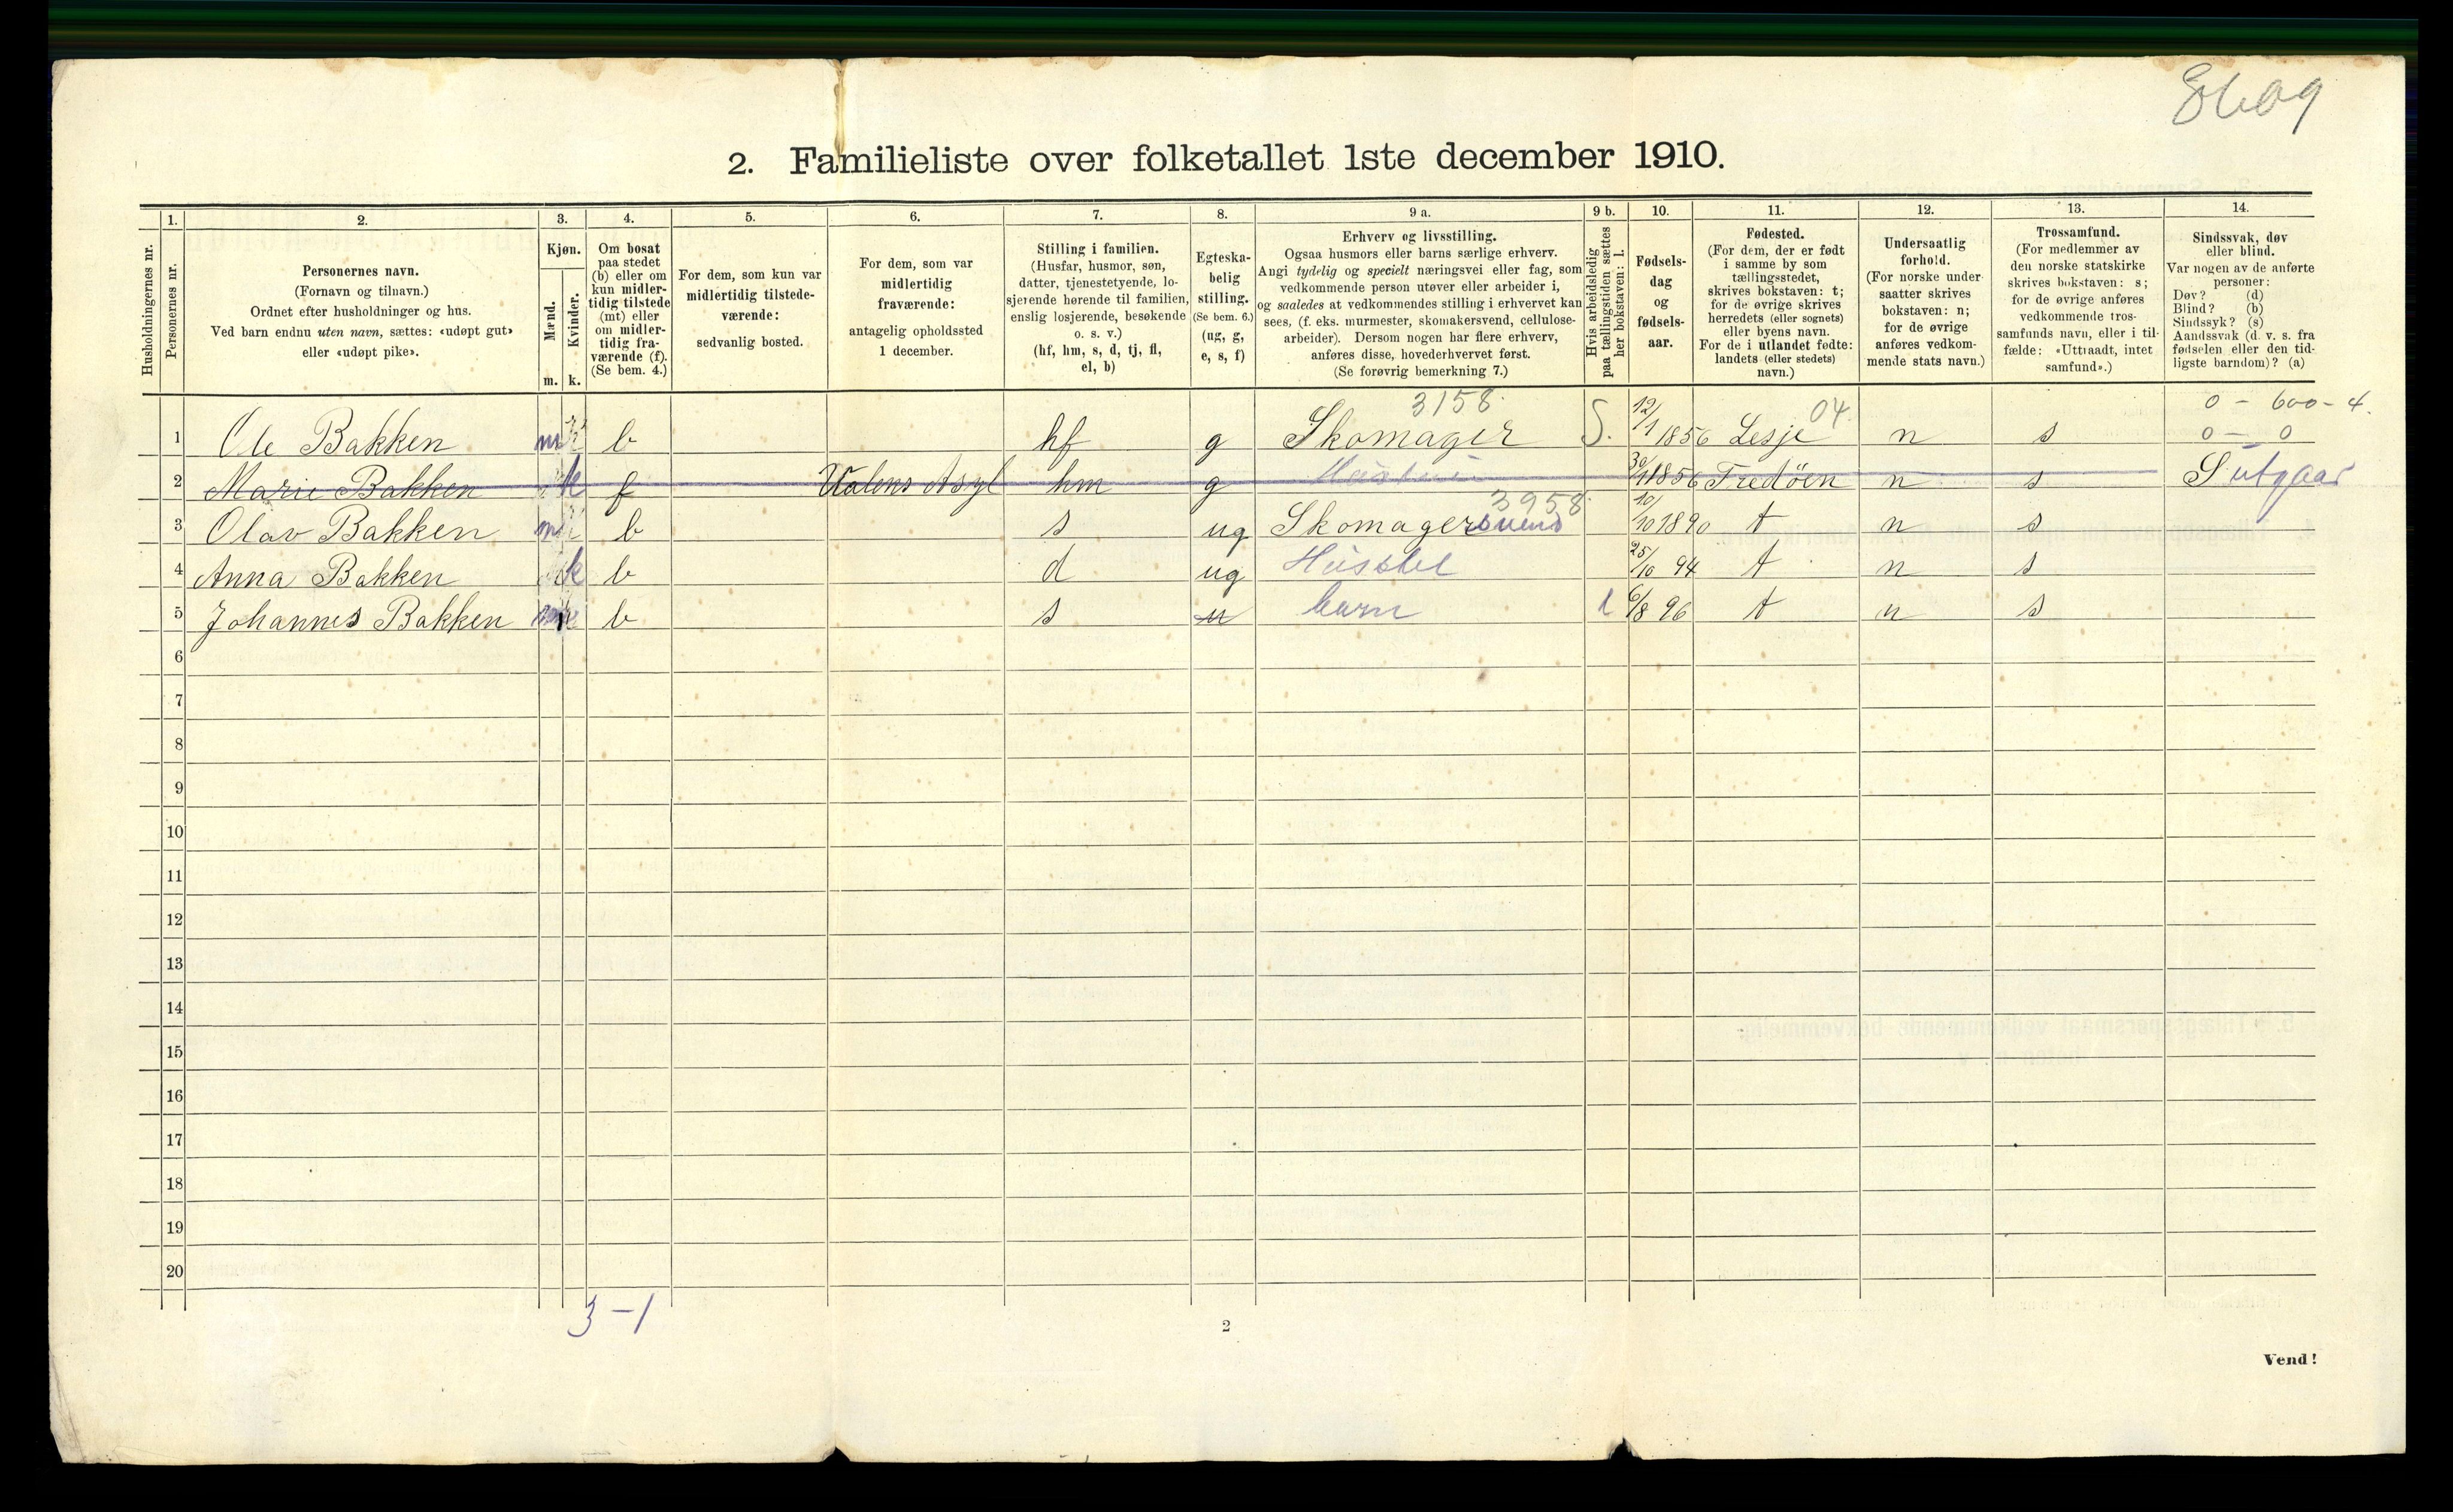 8609
2. Familieliste over folketallet 1ste december 1910.
Husholdningernes nr.
1.
Personernes nr.
2.
Personernes navn.
(Fornavn og tilnavn.)
Ordnet efter husholdninger og hus.
Ved barn endnu uten navn, sættes: «udøpt gut»
eller «udøpt pike».
3.
Kjøn.
Mænd.
Kvinder.
m. k.
4.
Om bosat
paa stedet
(b) eller om
kun midler-
tidig tilstede
(mt) eller
om midler-
tidig fra-
værende (f).
(Se bem. 4.)
5.
For dem, som kun var
midlertidig tilstede-
værende:
sedvanlig bosted.
6.
For dem, som var
midlertidig
fraværende:
antagelig opholdssted
1 december.
7.
Stilling i familien.
(Husfar, husmor, søn,
datter, tjenestetyende, lo-
sjerende hørende til familien,
enslig losjerende, besøkende
o. s. v.)
(hf, hm, s, d, tj, fl,
el, b)
8.
Egteska-
belig
stilling.
(Se bem. 6.)
(ug, g,
e, s, f)
9 a.
Erhverv og livsstilling.
Ogsaa husmors eller barns særlige erhverv.
Angi tydelig og specielt næringsvei eller fag, som
vedkommende person utøver eller arbeider i,
og saaledes at vedkommendes stilling i erhvervet kan
sees, (f. eks. murmester, skomakersvend, cellulose-
arbeider). Dersom nogen har flere erhverv,
anføres disse, hovederhvervet først.
(Se forøvrig bemerkning 7.)
9 b.
Hvis arbeidsledig
paa tællingstiden sættes
her bokstaven: l.
10.
Fødsels-
dag
og
fødsels-
aar.
11.
Fødested.
(For dem, der er født
i samme by som
tællingsstedet,
skrives bokstaven: t;
for de øvrige skrives
herredets (eller sognets)
eller byens navn.
For de i utlandet fødte:
landets (eller stedets)
navn.)
12.
Undersaatlig
forhold.
(For norske under-
saatter skrives
bokstaven: n;
for de øvrige
anføres vedkom-
mende stats navn.)
13.
Trossamfund.
(For medlemmer av
den norske statskirke
skrives bokstaven: s;
for de øvrige anføres
vedkommende tros-
samfunds navn, eller i til-
fælde: «Uttraadt, intet
samfund».)
14.
Sindssvak, døv
eller blind.
Var nogen av de anførte
personer:
Døv? (d)
Blind? (b)
Sindssyk? (s)
Aandssvak (d. v. s. fra
fødselen eller den tid-
ligste barndom)? (a)
3158. 04. 0 - 600 - 4.
1 Ole Bakken m b hf g Skomager S. 12/1 1856 Lesje n s 0 - 0
2 Marie Bakken k f Valens Asyl hm g 30/11 1856 Fredöen n s S utgaar
3958
3 Olav Bakken m b s ug Skomagersvend 10/10 1890 t n s
4 Anna Bakken k b d ug Husstel 25/10 94 t n s
5 Johannes Bakken m b s u barn l 6/8 96 t n s
6
7
8
9
10
11
12
13
14
15
16
17
18
19
20
3 - 1
2
Vend!